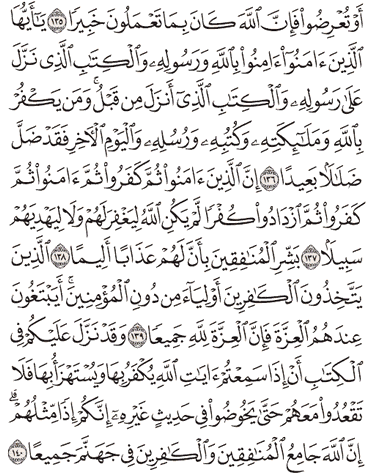 أَوْ تُعْرِضُوا۟ فَإِنَّ ٱللَّهَ كَانَ بِمَا تَعْمَلُونَ خَبِيرًا ١٣٥ يَـٰٓأَيُّهَا
ٱلَّذِينَ ءَامَنُوٓا۟ ءَامِنُوا۟ بِٱللَّهِ وَرَسُولِهِۦ وَٱلْكِتَـٰبِ ٱلَّذِى نَزَّلَ
عَلَىٰ رَسُولِهِۦ وَٱلْكِتَـٰبِ ٱلَّذِىٓ أَنزَلَ مِن قَبْلُ ۚ وَمَن يَكْفُرْ
بِٱللَّهِ وَمَلَـٰٓئِكَتِهِۦ وَكُتُبِهِۦ وَرُسُلِهِۦ وَٱلْيَوْمِ ٱلْـَٔاخِرِ فَقَدْ ضَلَّ
ضَلَـٰلًۢا بَعِيدًا ١٣٦ إِنَّ ٱلَّذِينَ ءَامَنُوا۟ ثُمَّ كَفَرُوا۟ ثُمَّ ءَامَنُوا۟ ثُمَّ
كَفَرُوا۟ ثُمَّ ٱزْدَادُوا۟ كُفْرًا لَّمْ يَكُنِ ٱللَّهُ لِيَغْفِرَ لَهُمْ وَلَا لِيَهْدِيَهُمْ
سَبِيلًۢا ١٣٧ بَشِّرِ ٱلْمُنَـٰفِقِينَ بِأَنَّ لَهُمْ عَذَابًا أَلِيمًا ١٣٨ ٱلَّذِينَ
يَتَّخِذُونَ ٱلْكَـٰفِرِينَ أَوْلِيَآءَ مِن دُونِ ٱلْمُؤْمِنِينَ ۚ أَيَبْتَغُونَ
عِندَهُمُ ٱلْعِزَّةَ فَإِنَّ ٱلْعِزَّةَ لِلَّهِ جَمِيعًا ١٣٩ وَقَدْ نَزَّلَ عَلَيْكُمْ فِى
ٱلْكِتَـٰبِ أَنْ إِذَا سَمِعْتُمْ ءَايَـٰتِ ٱللَّهِ يُكْفَرُ بِهَا وَيُسْتَهْزَأُ بِهَا فَلَا
تَقْعُدُوا۟ مَعَهُمْ حَتَّىٰ يَخُوضُوا۟ فِى حَدِيثٍ غَيْرِهِۦٓ ۚ إِنَّكُمْ إِذًا مِّثْلُهُمْ ۗ
إِنَّ ٱللَّهَ جَامِعُ ٱلْمُنَـٰفِقِينَ وَٱلْكَـٰفِرِينَ فِى جَهَنَّمَ جَمِيعًا ١٤٠